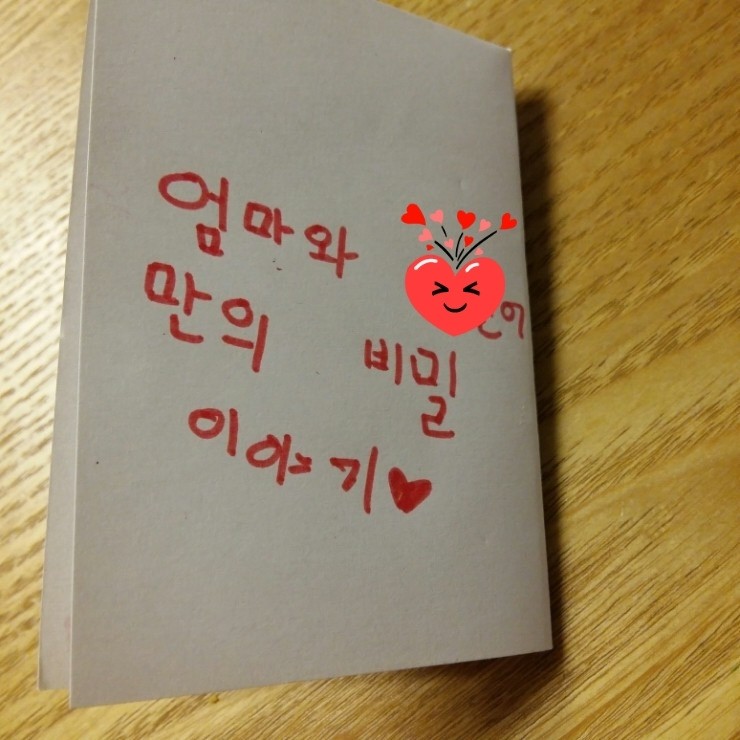 엄마와
만의 비밀
이야기♥